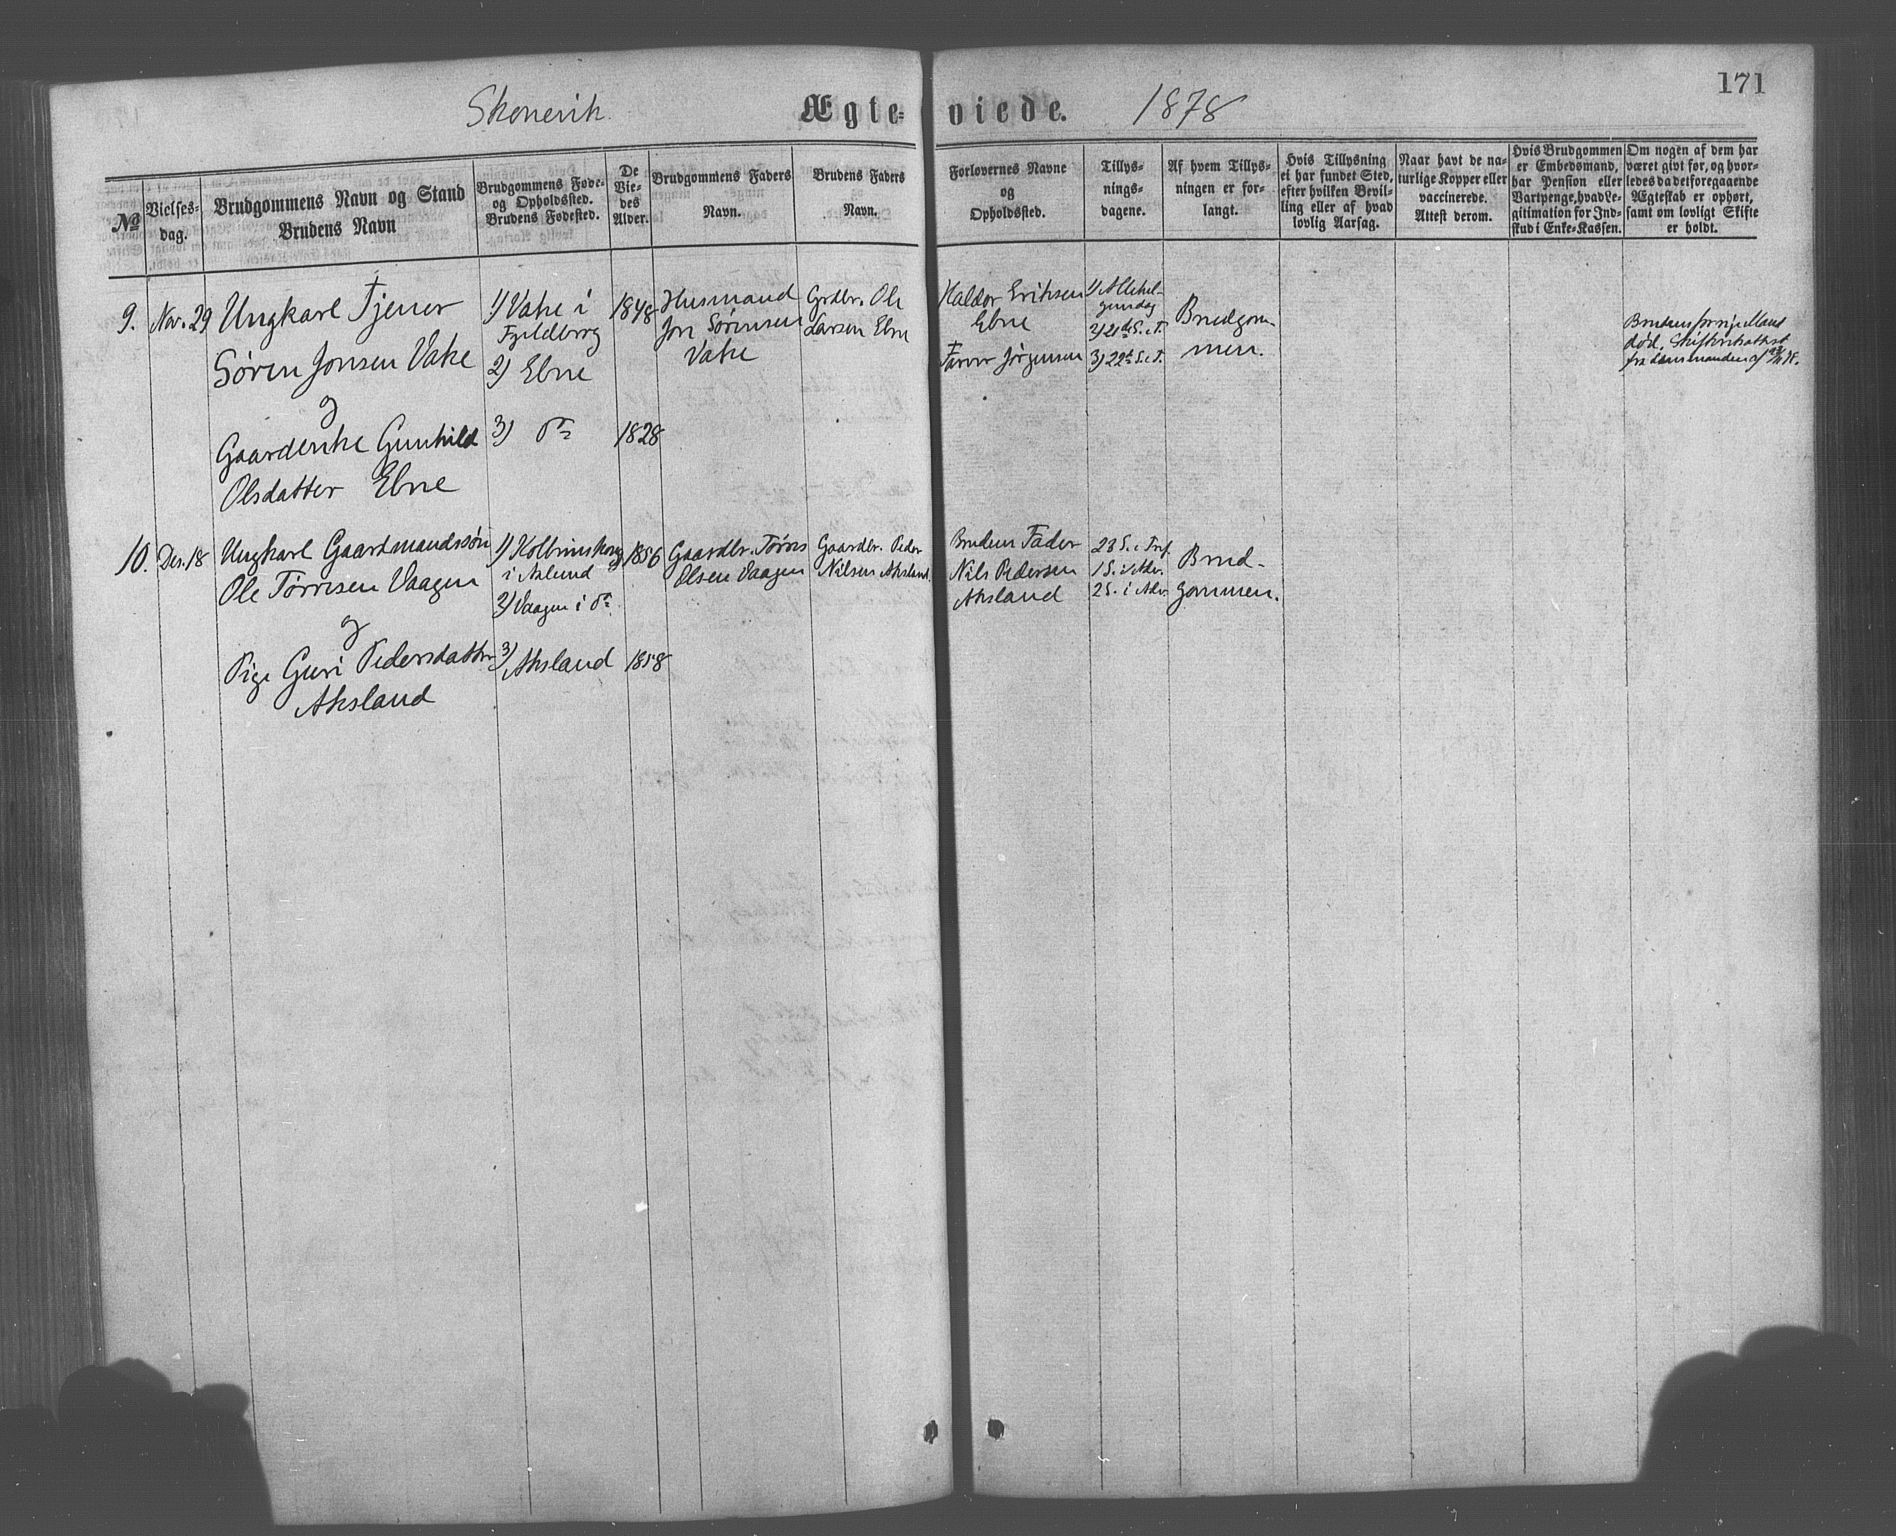 Skonevik
Ægteviede.
1878
171
No
Vielses-
dag.
Brudgommens Navn og Stand
Brudens Navn
Brudgommens Føde-
og Opholdssted.
Brudens Fødested.
De
Vie-
des
Alder.
Brudgommens Faders
Navn.
Brudens Faders
Navn.
Forlovernes Navne
og
Opholdssted.
Tillys-
nings-
dagene.
Af hvem Tillys-
ningen er for-
langt.
Hvis Tillysning
ei har fundet Sted,
efter hvilken Bevil-
ling eller af hvad
lovlig Aarsag.
Naar havt de na-
turlige Kopper eller
vaccinerede.
Attest derom.
Hvis Brudgommen
er Embedsmand,
har Pension eller
Vartpenge, hvad Le-
gitimation for Ind-
skud i Enke-Kassen.
Om nogen af dem har
været givt før, og hvor-
ledes da det foregaaende
Ægteskab er ophørt,
samt om lovligt Skifte
er holdt.
9.
Nov. 29
Ungkarl Tjener
Søren Jonsen Vake
og
Gaardenke Gunhild
Olsdatter Ebne
1) Vake i
Fjeldberg
2) Ebne
3) do
1848
1828
Husmand
Jon Sørensen
Vake
Grdbr. Ole
Larsen Ebne
Haldor Eriksen
Ebne
Jørgensen
1) Allehel-
gensdag
2) 21de S. e. T.
3) 22de S. e. T.
Brudgom-
men.
Brudens forrige Mand
død. Skifteattest
fra Lensmanden af
10.
Des. 18
Ungkarl Gaardmandssøn
Ole Tørresen Vaagen
og
Pige Guri Pedersdatter
Aksland
1)
i Aslund
2) Vaagen i do
3) Aksland
1856
1858
Gaardbr. Tørres
Olsen Vaagen
Gaardbr. Peder
Nilsen Aksland.
Brudens Fader
Nils Pedersen
Aksland
23 S. e. Tref.
1 S. i Adv.
2 S. i Adv.
Brud-
gommen.